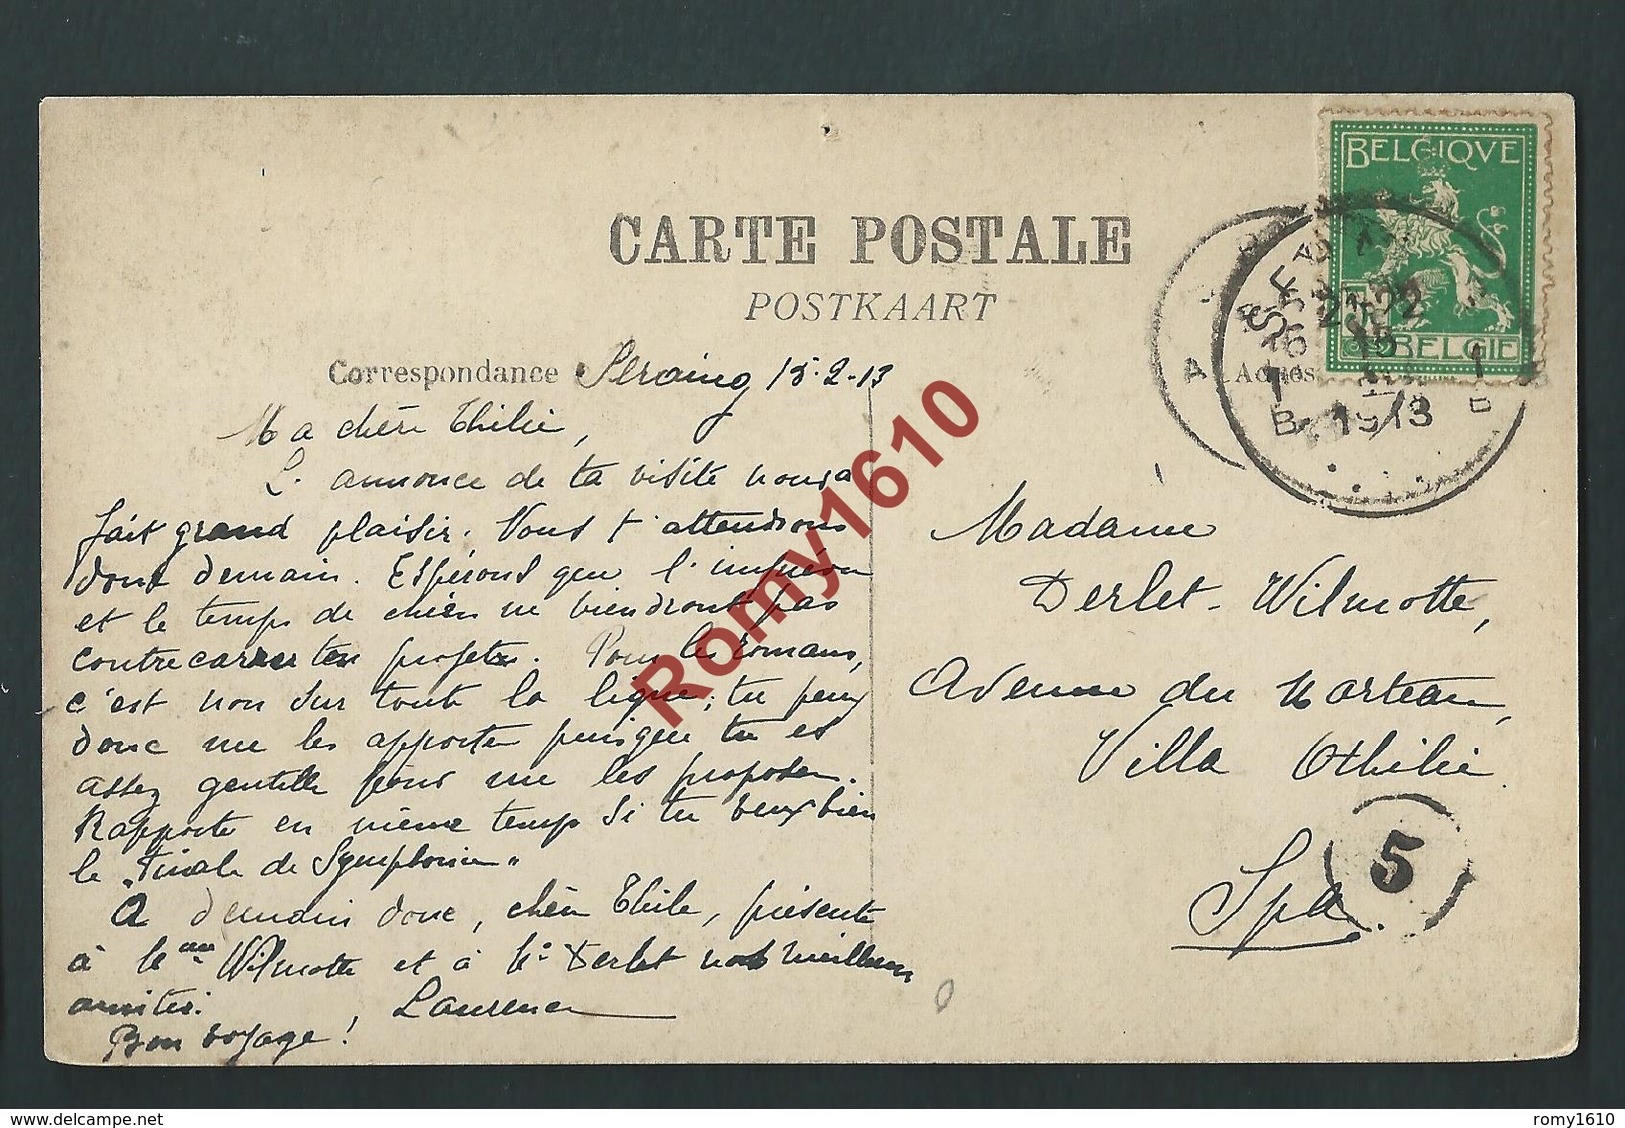 CARTE POSTALE
POSTKAART
Correspondance
Seraing 15-2-13
Ma chère Thilie,
L'annonce de ta visite nous a
fait grand plaisir. Nous t'attendrons
donc demain. Espérons que l'
et le temps de chien ne viendront pas
contrecarrer tes projets. Pour les romans,
c'est non sur toute la ligne; tu peux
donc me les apporter puisque tu es
assez gentille pour me les proposer.
Rapporte en même temps si tu veux bien
le "Finale de Symphonie"
A demain donc, chère Thilie, présente
à Me Wilmotte et à Mr Derlet nos meilleures
amitiés.
Laurence
Bon voyage!
BELGIQVE
BELGIE
SERAING
21-22
15
1913
1 B
Madame
Derlet-Wilmotte,
Avenue du Marteau,
Villa Othilie
Spa.
5
Romy1610
delcampe.net
romy1610